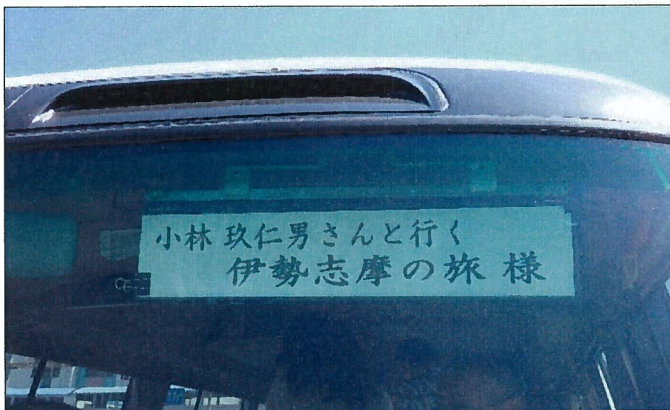 小林 玖仁男さんと行く
伊勢志摩の旅 様